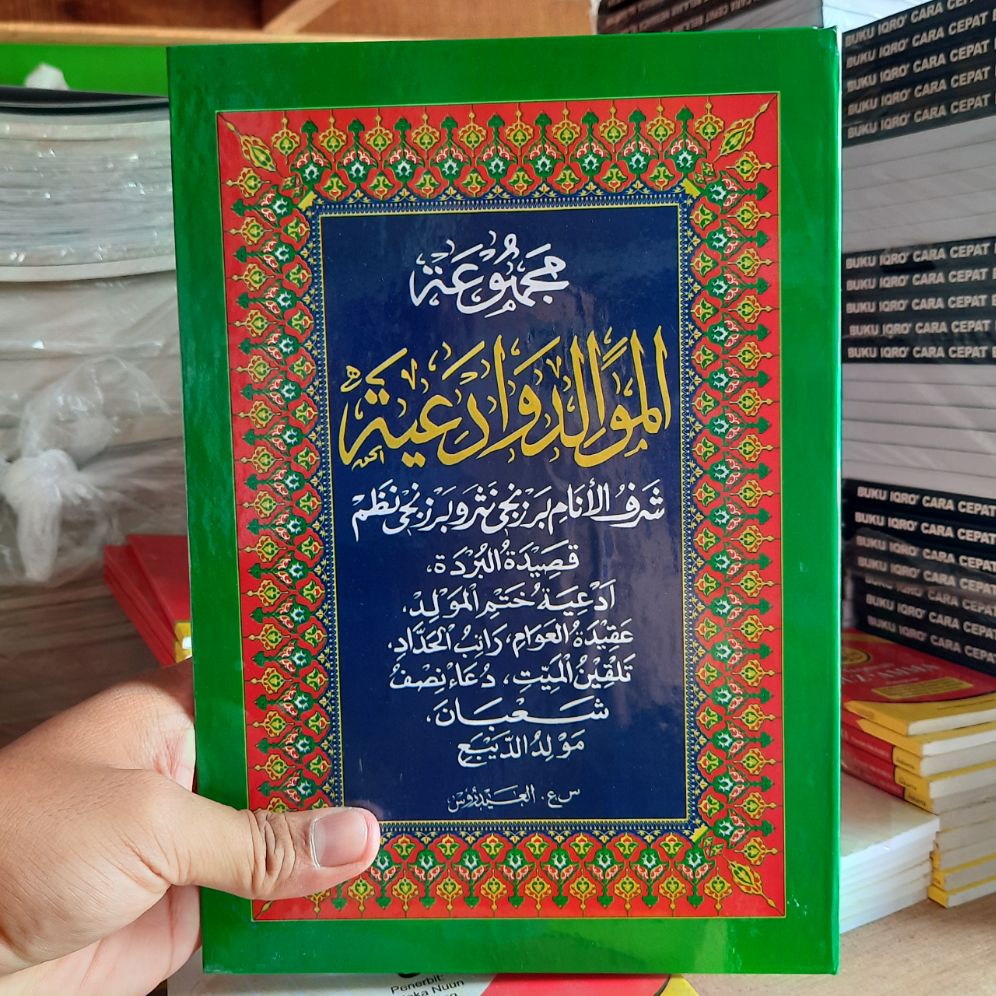 مَجْمُوْعَة
المَوَالِد وَادْعِيَة
شَرَفُ الأَنَامِ بَرْزَنْجِى نَثْر وَبَرْزَنْجِى نَظَمْ
قَصِيْدَةُ البُرْدَة،
اَدْعِيَةُ خَتْمِ المَوْلِدْ،
عَقِيْدَةُ العَوَام، رَاتِبُ الحَدَّاد،
تَلْقِيْنُ المَيِّتِ، دُعَاءُ نِصْفُ
شَعْبَانَ،
مَوْلِدُ الدَّيْبَعِ
س ع. العيدروس
BUKU IQRO' CARA CEPAT
BUKU IQRO' CARA CEPAT
BUKU IQRO' CARA CEPAT
BUKU IQRO' CARA CEPAT
BUKU IQRO' CARA CEPAT
BUKU IQRO' CARA CEPAT
BUKU IQRO' CARA CEPAT
BUKU IQRO' CARA CEPAT
BUKU IQRO' CARA CEPAT
BUKU IQRO' CARA CEPAT
BUKU IQRO' CARA CEPAT
BUKU IQRO' CARA CEPAT
BUKU IQRO' CARA CEPAT
BUKU IQRO' CARA CEPAT
Penerbit:
Nuun